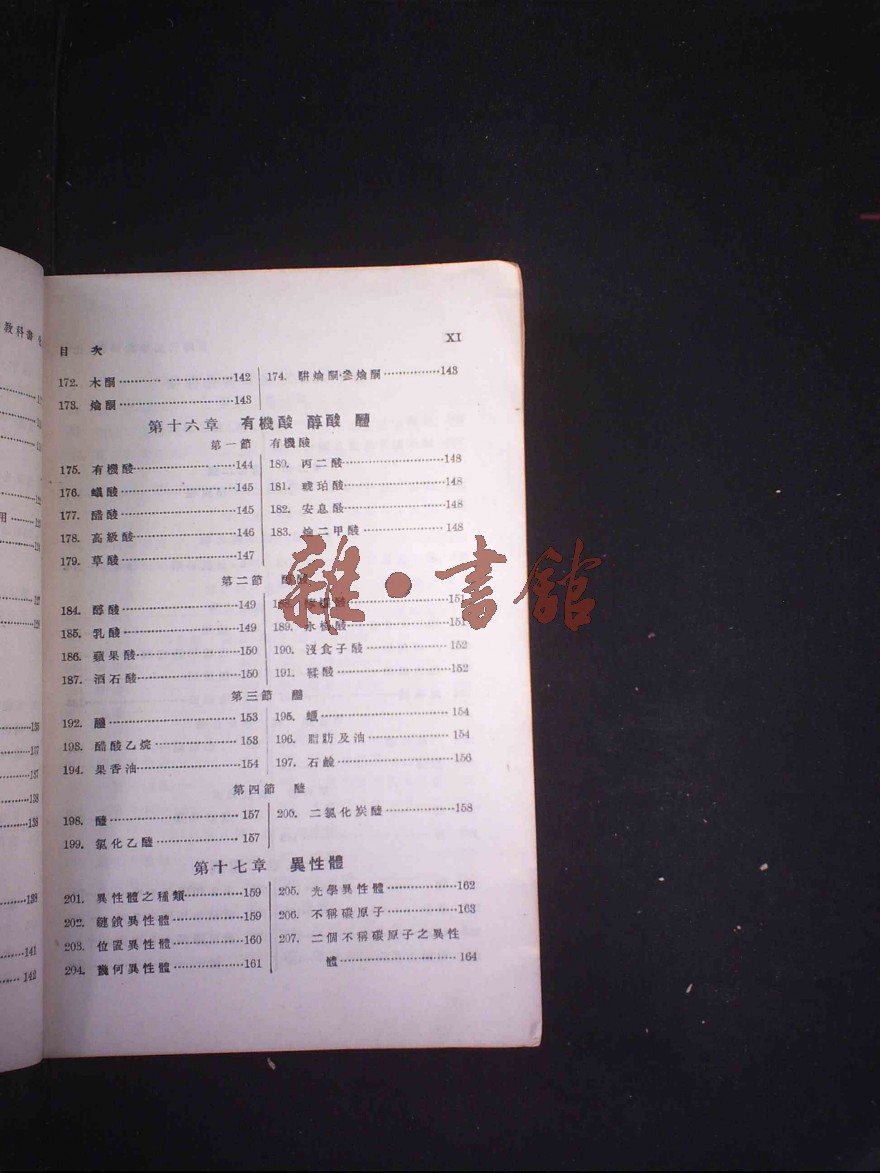 教科書
目 次
XI
172. 木酮…………142
173. 烚酮…………143
174. 駢烚酮·參烚酮…………143
第十六章 有機酸 醇酸 醯
第一節 有機酸
175. 有機酸…………144
176. 蟻酸…………145
177. 醋酸…………145
178. 高級酸…………146
179. 草酸…………147
180. 丙二酸…………148
181. 琥珀酸…………148
182. 安息酸…………148
183. 烚二甲酸…………148
第二節
184. 醇酸…………149
185. 乳酸…………149
186. 蘋果酸…………150
187. 酒石酸…………150
酸…………151
189. 酸…………151
190. 沒食子酸…………152
191. 鞣酸…………152
第三節
192. …………153
193. 醋酸乙烷…………153
194. 果香油…………154
195. 蠟…………154
196. 脂肪及油…………154
197. 石鹼…………156
第四節 醚
198. 醚…………157
199. 氯化乙醚…………157
200. 二氯化炭醚…………158
第十七章 異性體
201. 異性體之種類…………159
202. 鏈鎖異性體…………159
203. 位置異性體…………160
204. 幾何異性體…………161
205. 光學異性體…………162
206. 不稱碳原子…………163
207. 二個不稱碳原子之異性
體…………164
雜·書館